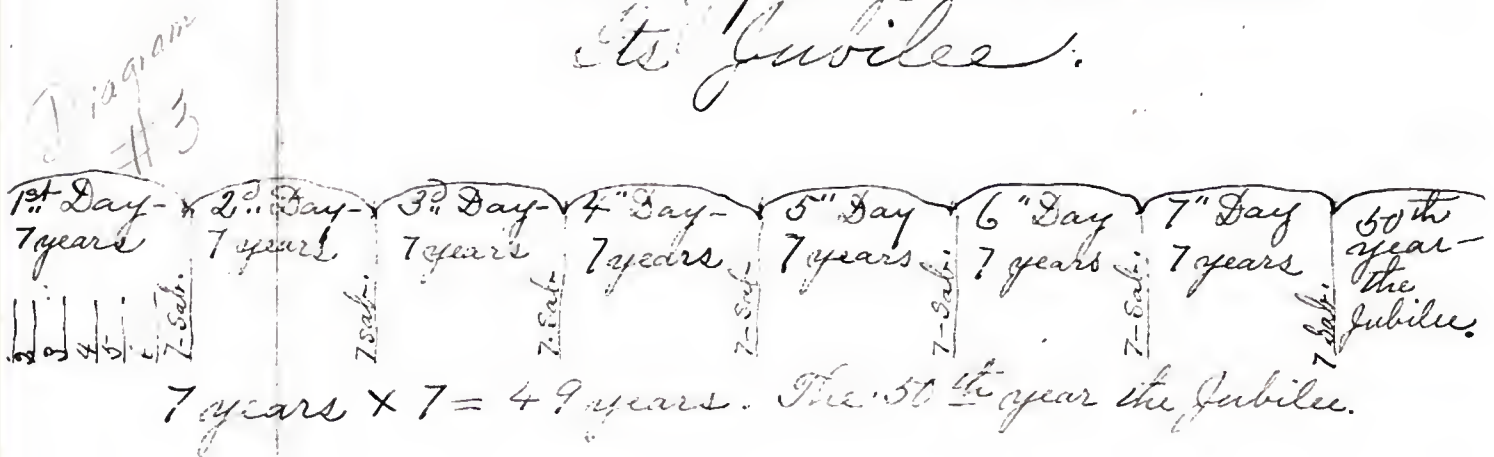 Its Jubilee.
Diagram
#3
1st Day-
7 years
2d Day-
7 years
3d Day-
7 years
4" Day-
7 years
5" Day
7 years
6" Day
7 years
7" Day
7 years
50th
year-
the
Jubilee.
2
3
4
5
7-Sab.
7 Sab-
7-Sab-
7-Sab-
7-Sab.
7-Sab.
7 Sab.
7 years × 7 = 49 years. The 50th year the Jubilee.